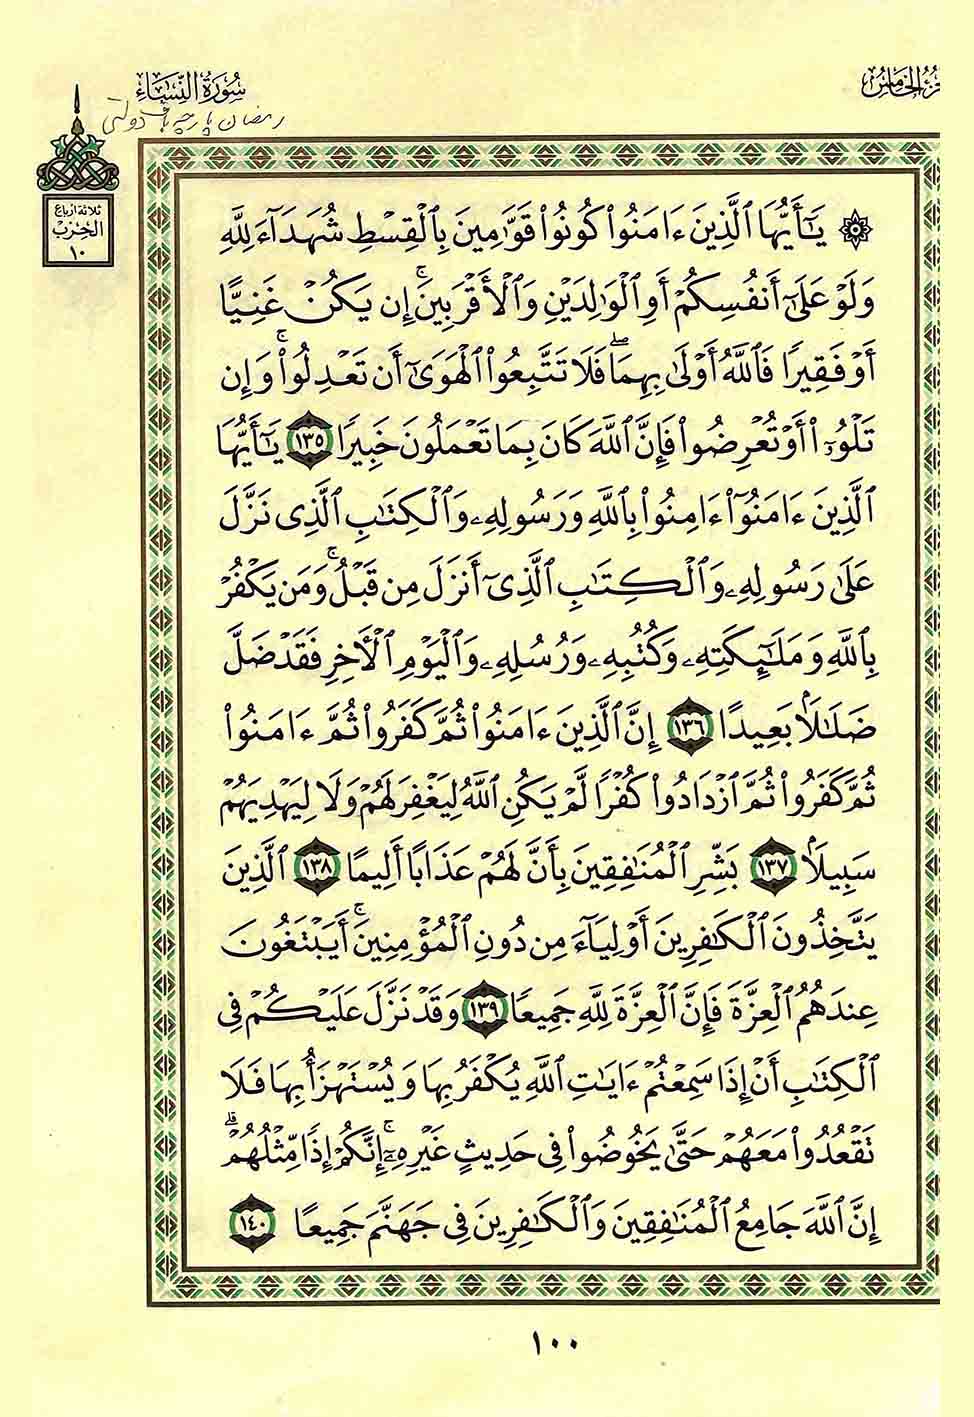 الجزء الخامس
سُورَةُ النِّسَاءِ
رمضان پارچه باف دولتی
ثلاثة أرباع
الحزب
١٠
۞ يَٰٓأَيُّهَا ٱلَّذِينَ ءَامَنُوا۟ كُونُوا۟ قَوَّٰمِينَ بِٱلْقِسْطِ شُهَدَآءَ لِلَّهِ
وَلَوْ عَلَىٰٓ أَنفُسِكُمْ أَوِ ٱلْوَٰلِدَيْنِ وَٱلْأَقْرَبِينَ ۚ إِن يَكُنْ غَنِيًّا
أَوْ فَقِيرًا فَٱللَّهُ أَوْلَىٰ بِهِمَا ۖ فَلَا تَتَّبِعُوا۟ ٱلْهَوَىٰٓ أَن تَعْدِلُوا۟ ۚ وَإِن
تَلْوُۥٓا۟ أَوْ تُعْرِضُوا۟ فَإِنَّ ٱللَّهَ كَانَ بِمَا تَعْمَلُونَ خَبِيرًا ١٣٥ يَٰٓأَيُّهَا
ٱلَّذِينَ ءَامَنُوٓا۟ ءَامِنُوا۟ بِٱللَّهِ وَرَسُولِهِۦ وَٱلْكِتَٰبِ ٱلَّذِى نَزَّلَ
عَلَىٰ رَسُولِهِۦ وَٱلْكِتَٰبِ ٱلَّذِىٓ أَنزَلَ مِن قَبْلُ ۚ وَمَن يَكْفُرْ
بِٱللَّهِ وَمَلَٰٓئِكَتِهِۦ وَكُتُبِهِۦ وَرُسُلِهِۦ وَٱلْيَوْمِ ٱلْأَخِرِ فَقَدْ ضَلَّ
ضَلَٰلًۢا بَعِيدًا ١٣٦ إِنَّ ٱلَّذِينَ ءَامَنُوا۟ ثُمَّ كَفَرُوا۟ ثُمَّ ءَامَنُوا۟
ثُمَّ كَفَرُوا۟ ثُمَّ ٱزْدَادُوا۟ كُفْرًا لَّمْ يَكُنِ ٱللَّهُ لِيَغْفِرَ لَهُمْ وَلَا لِيَهْدِيَهُمْ
سَبِيلًۢا ١٣٧ بَشِّرِ ٱلْمُنَٰفِقِينَ بِأَنَّ لَهُمْ عَذَابًا أَلِيمًا ١٣٨ ٱلَّذِينَ
يَتَّخِذُونَ ٱلْكَٰفِرِينَ أَوْلِيَآءَ مِن دُونِ ٱلْمُؤْمِنِينَ ۚ أَيَبْتَغُونَ
عِندَهُمُ ٱلْعِزَّةَ فَإِنَّ ٱلْعِزَّةَ لِلَّهِ جَمِيعًا ١٣٩ وَقَدْ نَزَّلَ عَلَيْكُمْ فِى
ٱلْكِتَٰبِ أَنْ إِذَا سَمِعْتُمْ ءَايَٰتِ ٱللَّهِ يُكْفَرُ بِهَا وَيُسْتَهْزَأُ بِهَا فَلَا
تَقْعُدُوا۟ مَعَهُمْ حَتَّىٰ يَخُوضُوا۟ فِى حَدِيثٍ غَيْرِهِۦٓ ۚ إِنَّكُمْ إِذًا مِّثْلُهُمْ ۗ
إِنَّ ٱللَّهَ جَامِعُ ٱلْمُنَٰفِقِينَ وَٱلْكَٰفِرِينَ فِى جَهَنَّمَ جَمِيعًا ١٤٠
١٠٠